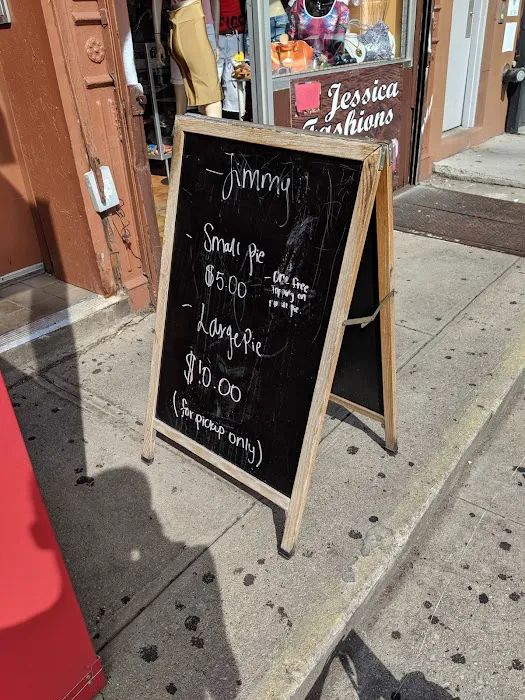 Jessica
Fashions
- Jimmy
- Small Pie
$5.00
- One free
topping on
- Large Pie
$10.00
(for pickup only)